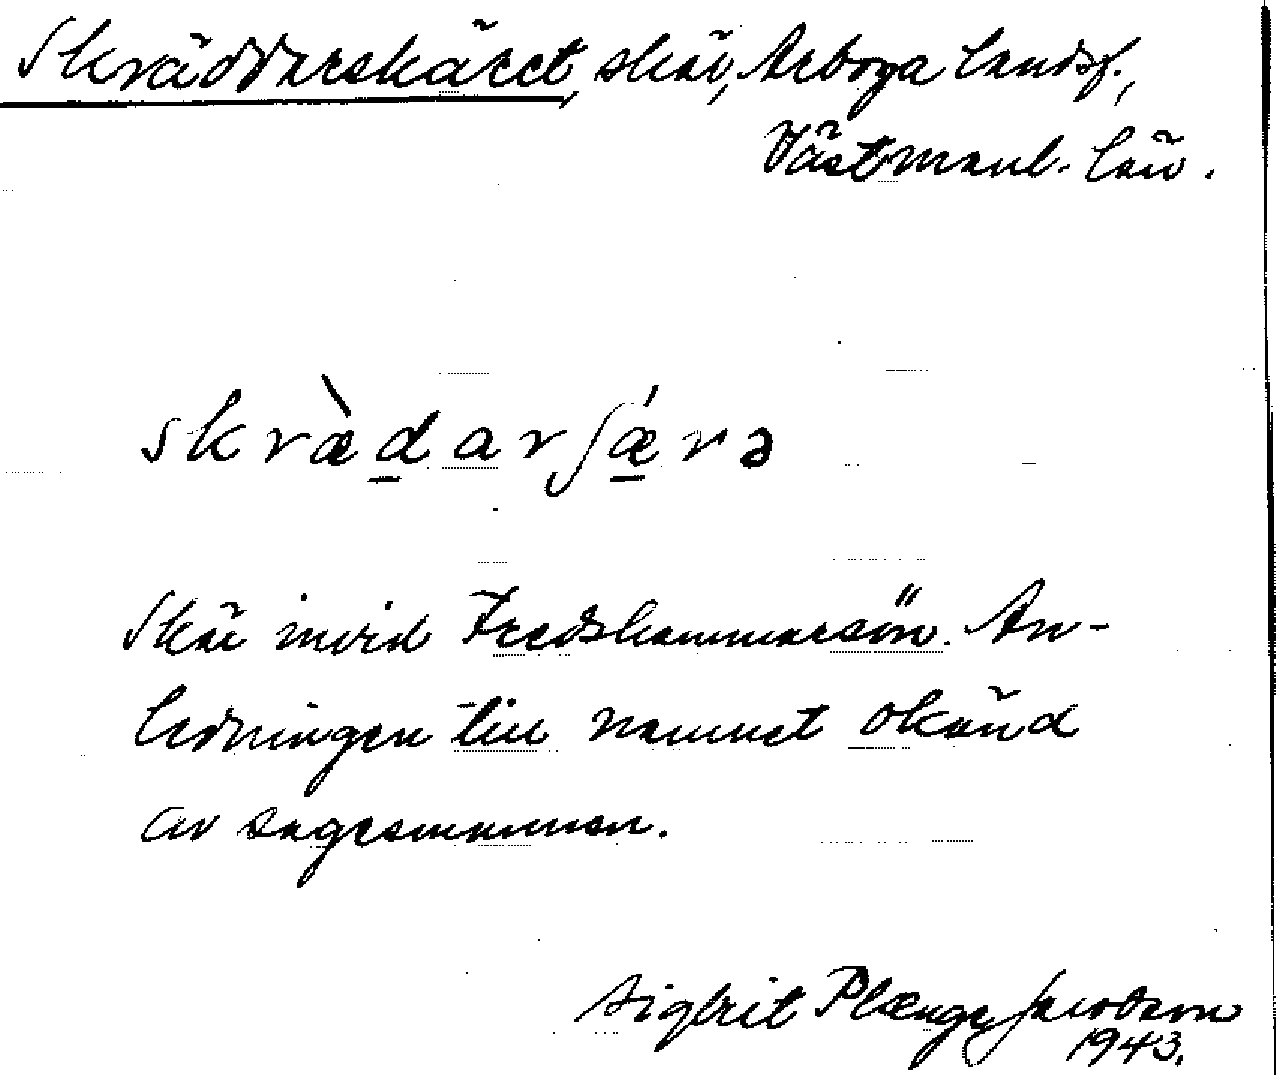 Skräddarskäret, skär, Arboga landsf.,
Västmanl. län.
skræ̀darʃǽrə
Skär invid Fredshammarsön. An-
ledningen till namnet okänd
av sagesmannen.
Sigfrit Plænge Jacobson
1943.